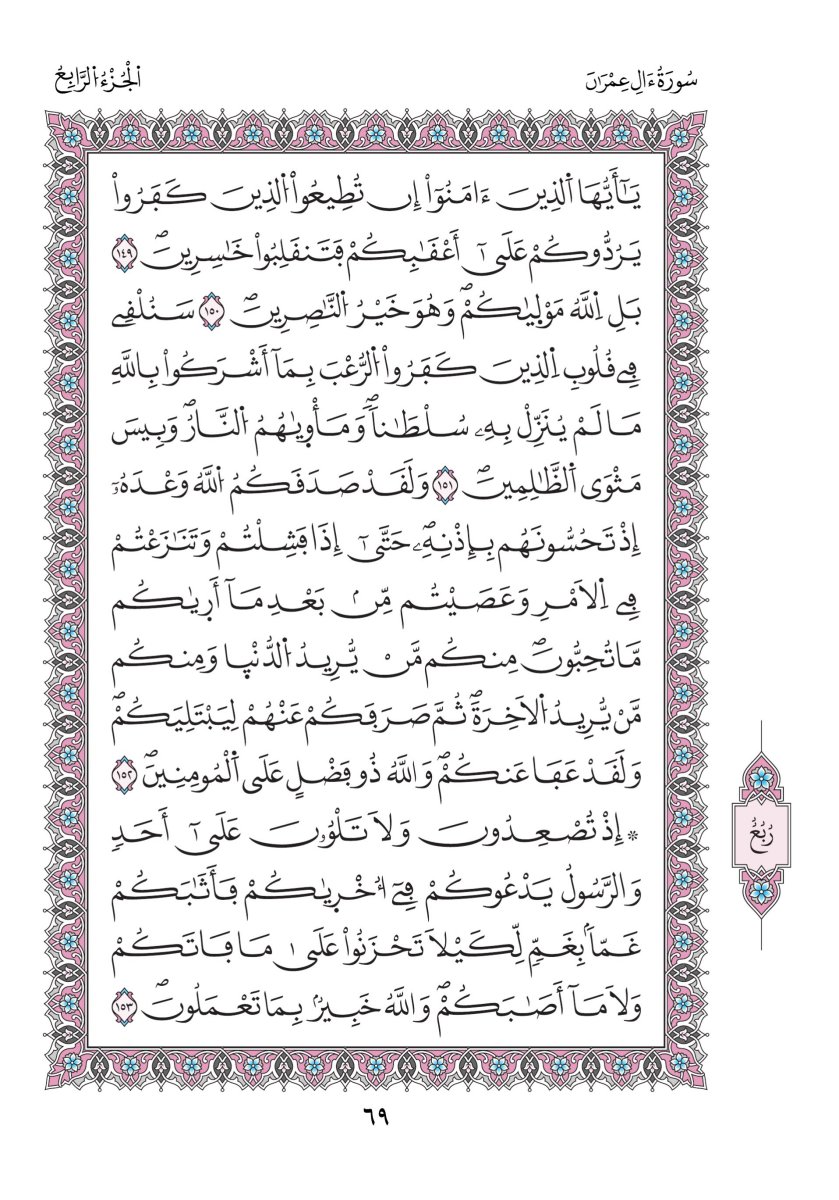 سُورَةُ ءَالِ عِمْرَٰنَ
اَلْجُزْءُ اُلرَّابِعُ
يَٰٓأَيُّهَا اَلذِينَ ءَامَنُوٓاْ إِن تُطِيعُواْ اُلذِينَ كَفَرُواْ
يَرُدُّوكُمْ عَلَىٰٓ أَعْقَٰبِكُمْ فَتَنقَلِبُواْ خَٰسِرِينَۖ ١٤٩
بَلِ اِللَّهُ مَوْلِيٰكُمْۖ وَهُوَ خَيْرُ اُلنَّٰصِرِينَۖ ١٥٠ سَنُلْقِے
فِے قُلُوبِ اِلذِينَ كَفَرُواْ اُلرُّعْبَ بِمَآ أَشْرَكُواْ بِاللَّهِ
مَا لَمْ يُنَزِّلْ بِهِۦ سُلْطَٰناٗۖ وَمَأْوِيٰهُمُ اُلنَّارُۖ وَبِيسَ
مَثْوَى اَلظَّٰلِمِينَۖ ١٥١ وَلَقَدْ صَدَقَكُمُ اُللَّهُ وَعْدَهُۥٓ
إِذْ تَحُسُّونَهُم بِإِذْنِهِۦۖ حَتَّىٰٓ إِذَا فَشِلْتُمْ وَتَنَٰزَعْتُمْ
فِے اِلَامْرِ وَعَصَيْتُم مِّنۢ بَعْدِ مَآ أَرِيٰكُم
مَّا تُحِبُّونَۖ مِنكُم مَّنْ يُّرِيدُ اُلدُّنْيِا وَمِنكُم
مَّنْ يُّرِيدُ اُلَاخِرَةَۖ ثُمَّ صَرَفَكُمْ عَنْهُمْ لِيَبْتَلِيَكُمْۖ
وَلَقَدْ عَفَا عَنكُمْۖ وَاللَّهُ ذُو فَضْلٍ عَلَى اَلْمُومِنِينَۖ ١٥٢
* إِذْ تُصْعِدُونَ وَلَا تَلْوُۥنَ عَلَىٰٓ أَحَدٖ
وَالرَّسُولُ يَدْعُوكُمْ فِےٓ أُخْرِيٰكُمْ فَأَثَٰبَكُمْ
غَمّاَۢ بِغَمّٖ لِّكَيْلَا تَحْزَنُواْ عَلَىٰ مَا فَاتَكُمْ
وَلَا مَآ أَصَٰبَكُمْۖ وَاللَّهُ خَبِيرُۢ بِمَا تَعْمَلُونَۖ ١٥٣
رُبُعُ
٦٩